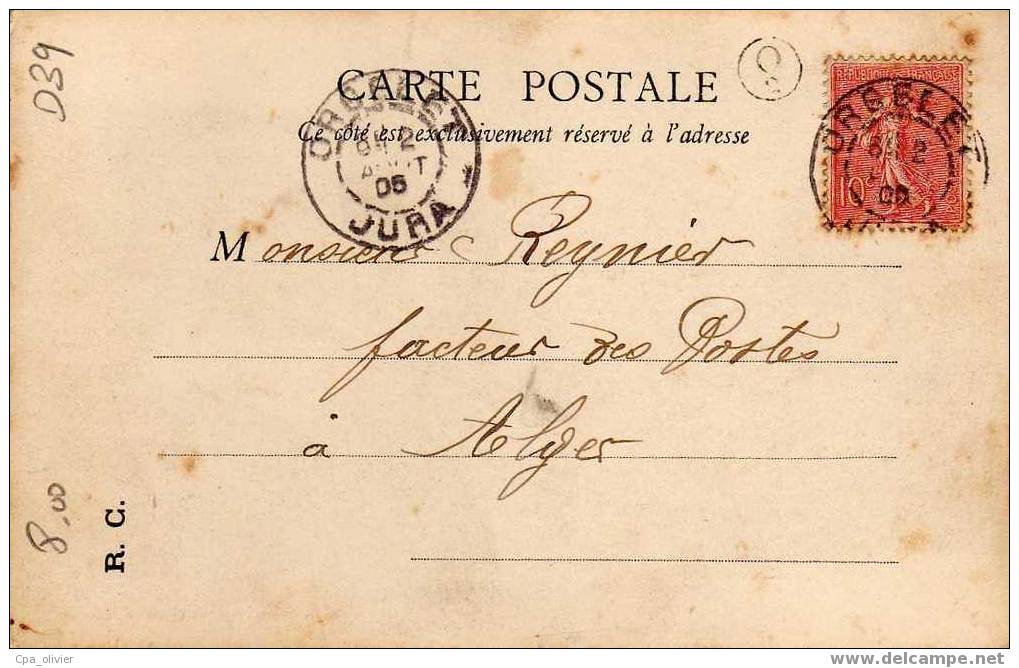 D39
CARTE POSTALE
Ce côté est exclusivement réservé à l'adresse
ORGELET
2
AOUT
05
JURA
RÉPUBLIQUE FRANÇAISE
10
ORGELET
2
05
Monsieur Reynier
facteur des Postes
à Alger
8,00
R. C.
Cpa_olivier
www.delcampe.net